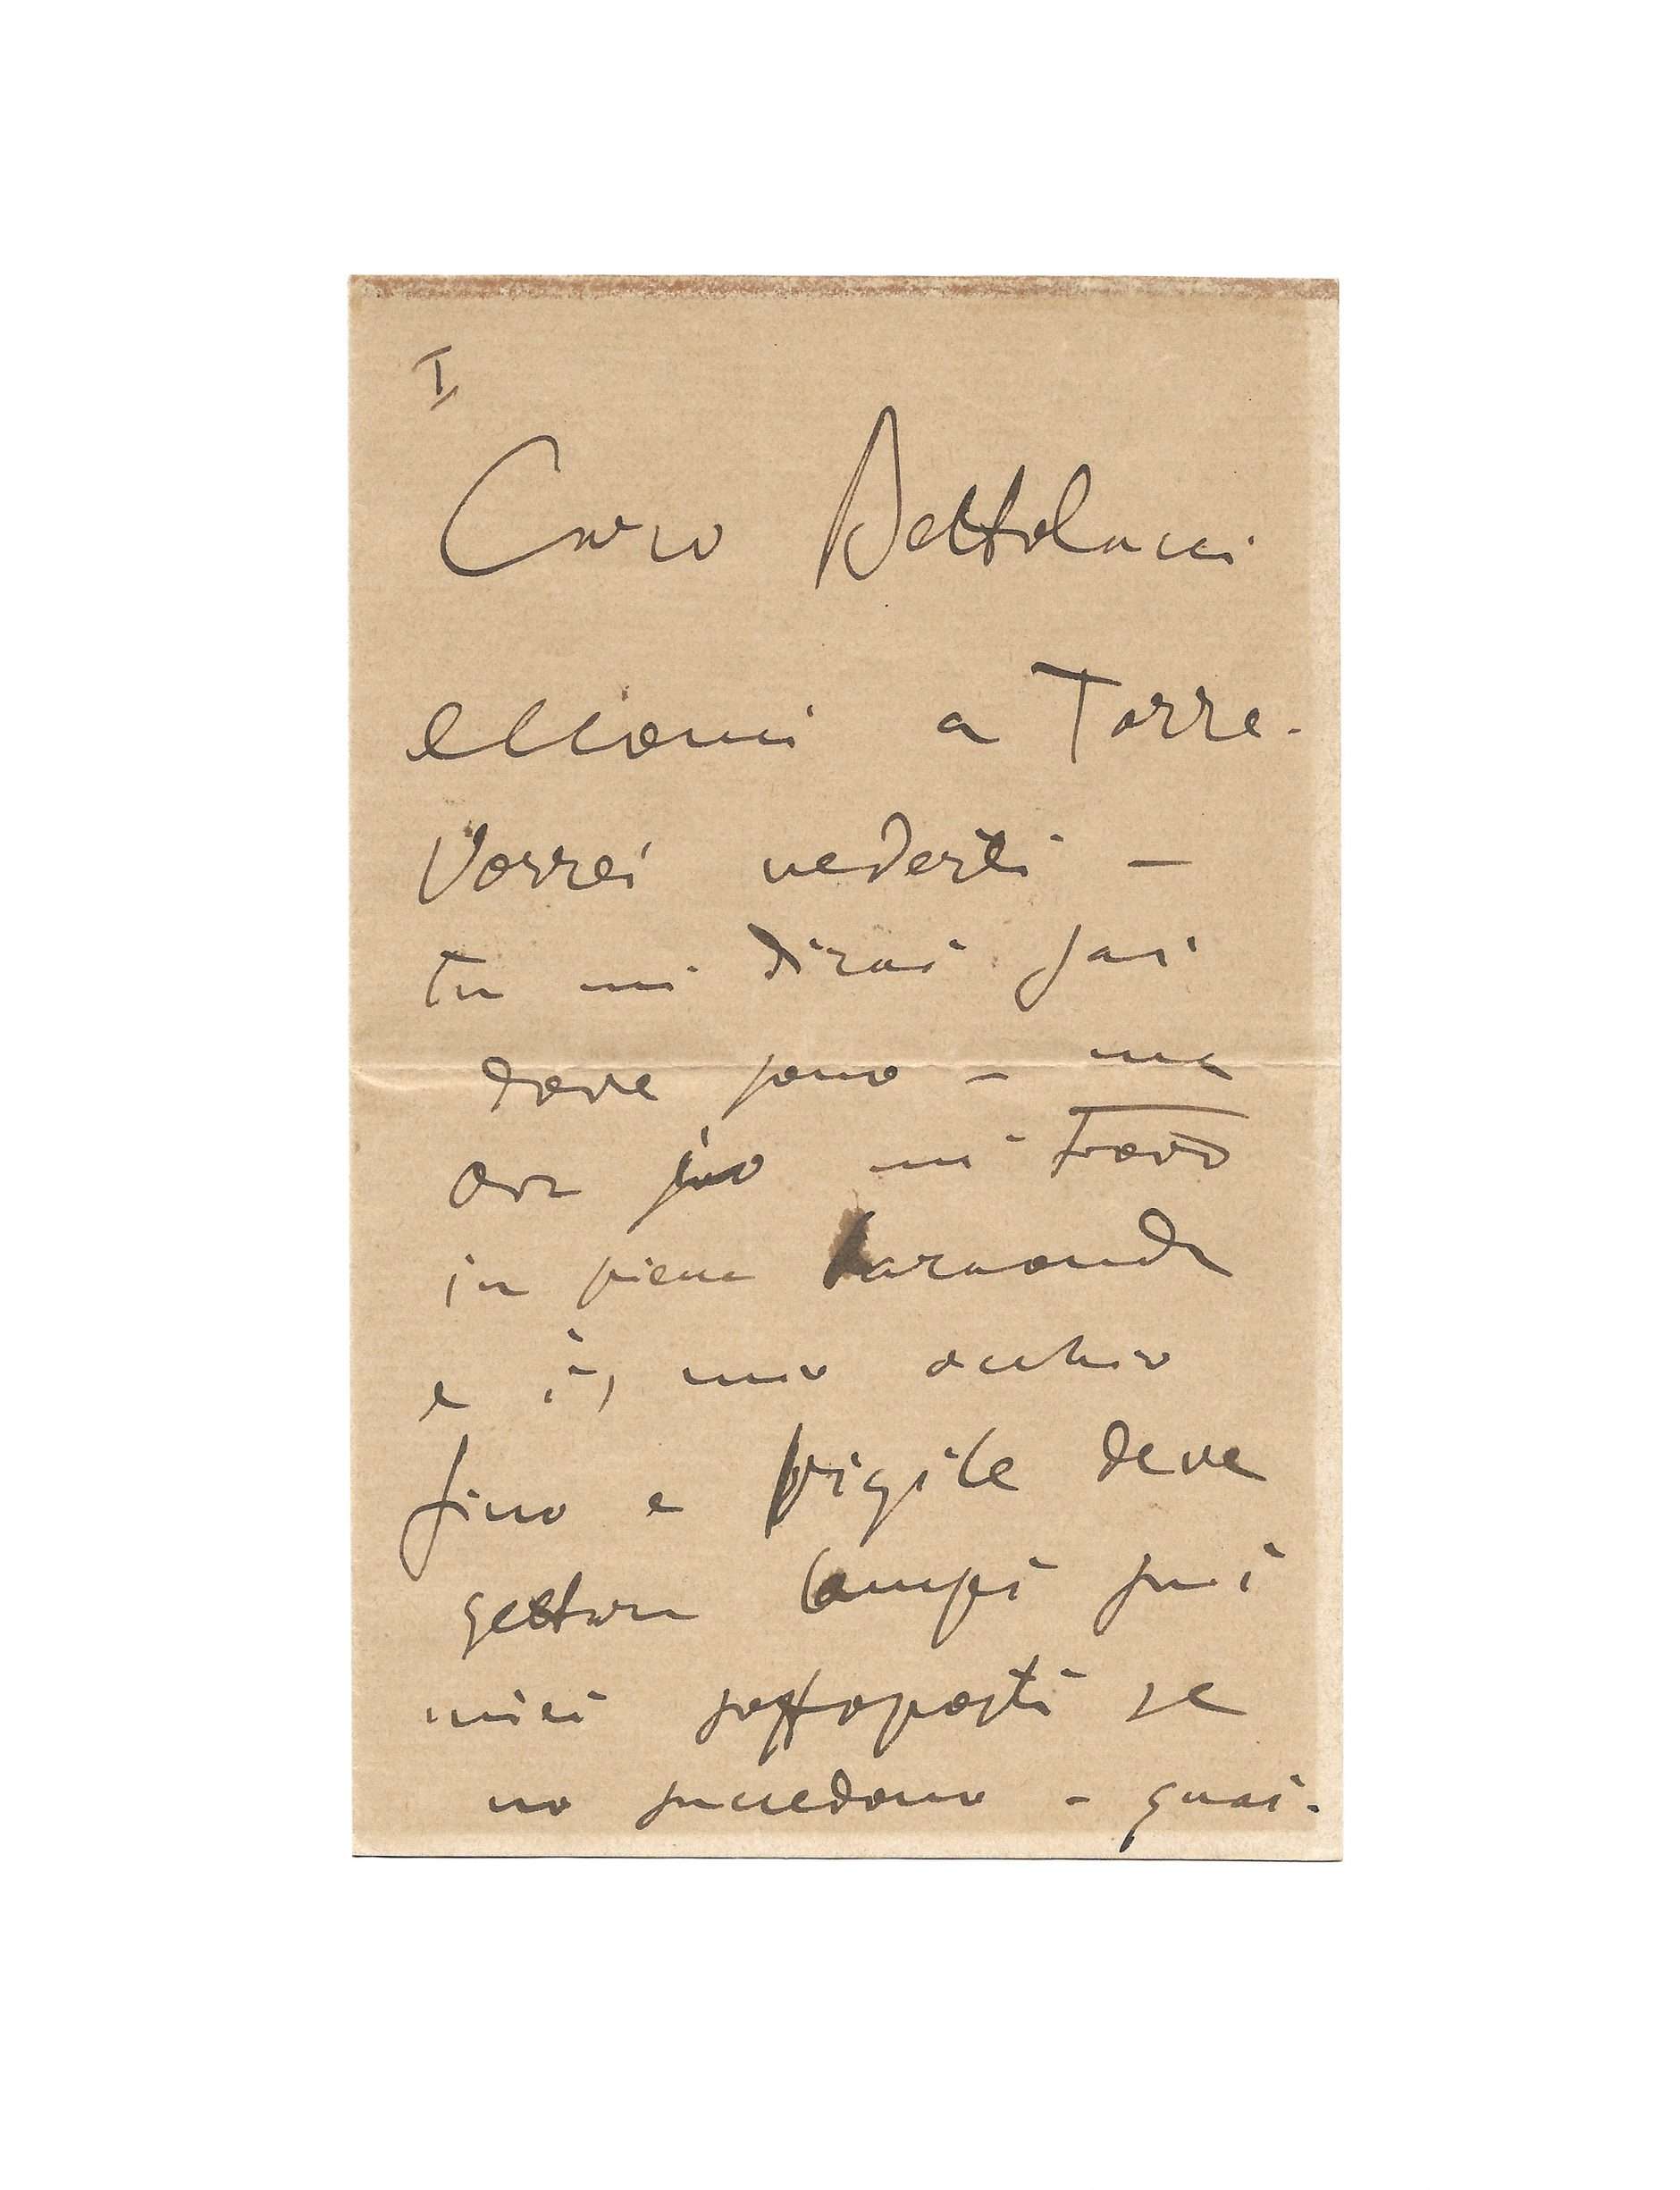 I
Caro Bettolacci
eccomi a Torre.
Vorrei vederti —
tu mi dirai sai
dove sono — ma
ora mi trovo
in piena baraonda
e il mio occhio
fino e vigile deve
gettare lampi sui
miei sottoposti se
no succedono - guai.